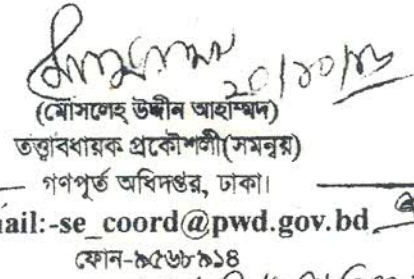 ২০/১০/১৮
(মোসলেহ উদ্দীন আহাম্মদ)
তত্ত্বাবধায়ক প্রকৌশলী(সমন্বয়)
গণপূর্ত অধিদপ্তর, ঢাকা।
ail:-se_coord@pwd.gov.bd
ফোন-৯৫৬৮৯১৪